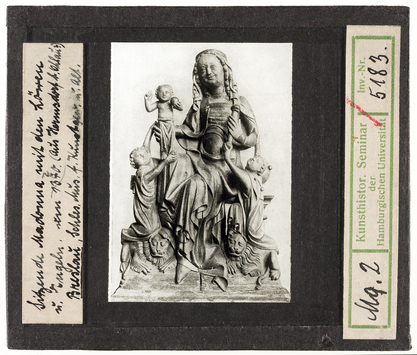 Sitzende Madonna mit den Löwen
u. Engeln. um 137. (aus Hermsdorf b.
Breslau, Schles. Mus. f. Kunstgew. u. Alt.
Kunsthistor. Seminar
der
Hamburgischen Universität
Inv.-Nr.
5183.
Mg. 2